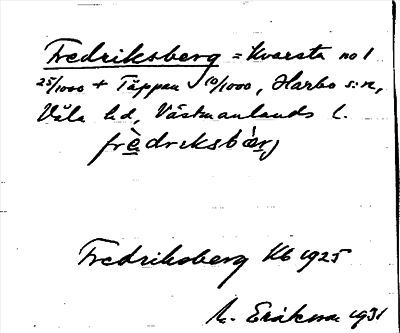 Fredriksberg = Kvarsta no 1
25/1000 + Täppan 10/1000, Harbo s:n,
Våla hd, Västmanlands l.
frèdriksbärj
Fredriksberg Kb 1925
M. Eriksson 1931